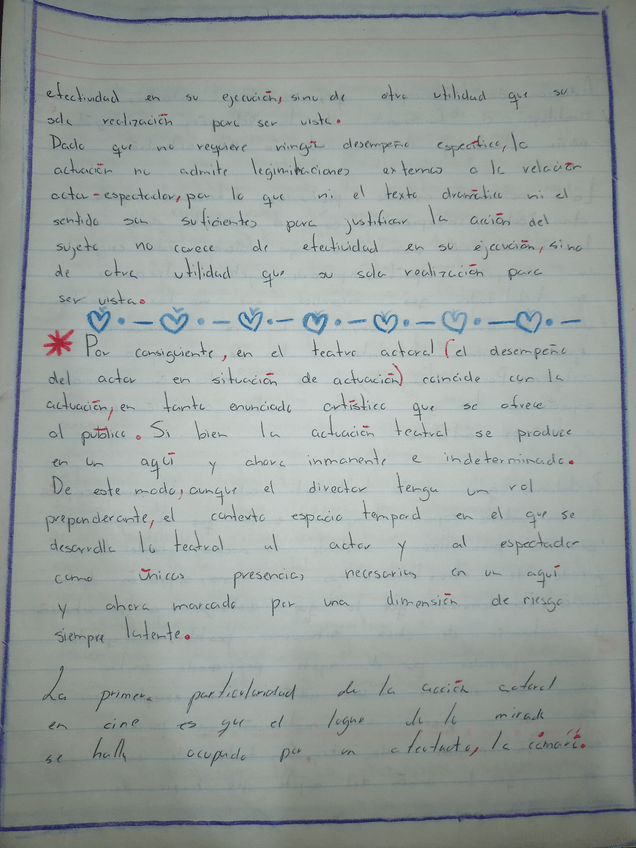 efectividad en su ejecución, sino de otra utilidad que su
sola realización para ser vista.
Dado que no requiere ningún desempeño específico, la
actuación no admite legimitaciones externas a la relación
actor-espectador, por lo que ni el texto dramático ni el
sentido son suficientes para justificar la acción del
sujeto no carece de efectividad en su ejecución, sino
de otra utilidad que su sola realización para
ser vista.
Por consiguiente, en el teatro actoral (el desempeño
del actor en situación de actuación) coincide con la
actuación, en tanto enunciado artístico que se ofrece
al público. Si bien la actuación teatral se produce
en un aquí y ahora inmanente e indeterminado.
De este modo, aunque el director tenga un rol
preponderante, el contexto espacio temporal en el que se
desarrolla lo teatral al actor y al espectador
como únicas presencias necesarias en un aquí
y ahora marcado por una dimensión de riesgo
siempre latente.
La primera particularidad de la acción actoral
en cine es que el lugar de la mirada
se halla ocupado por un artefacto, la cámara.